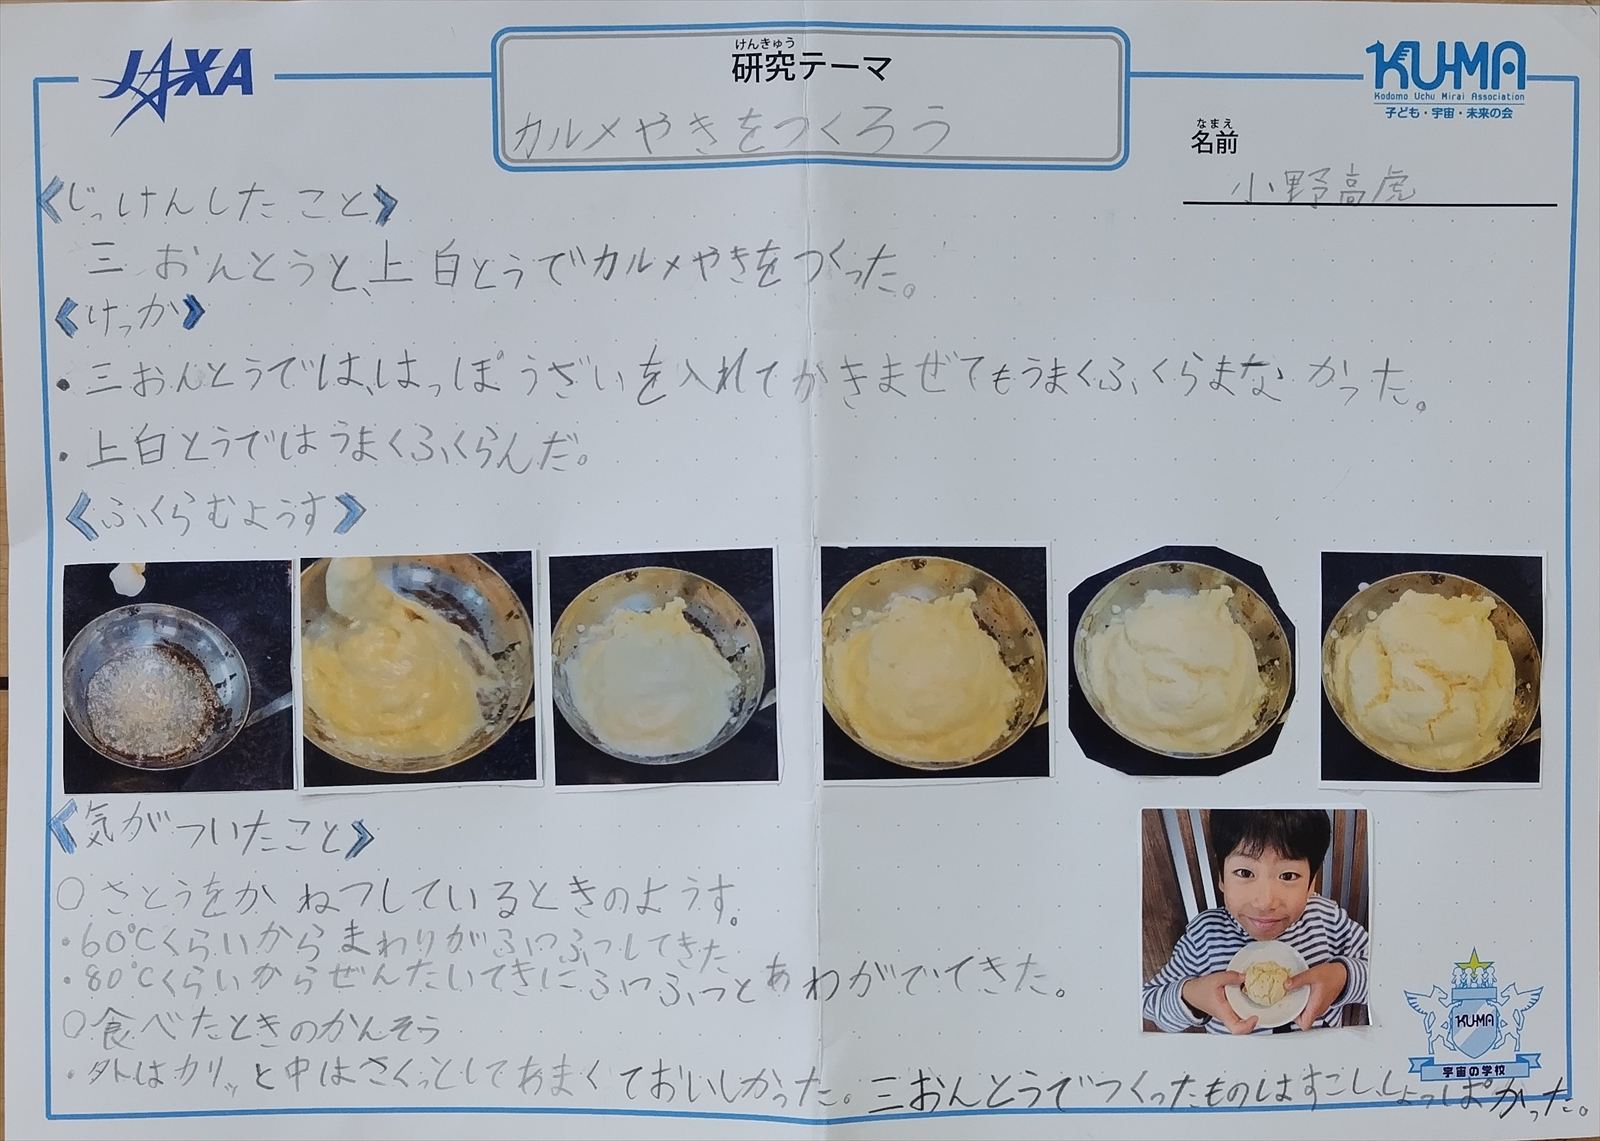 JAXA
けんきゅう
研究テーマ
カルメやきをつくろう
KU-MA
Kodomo Uchu Mirai Association
子ども・宇宙・未来の会
なまえ
名前
小野高虎
《じっけんしたこと》
三おんとうと、上白とうでカルメやきをつくった。
《けっか》
・三おんとうでは、はっぽうざいを入れてかきまぜてもうまくふくらまなかった。
・上白とうではうまくふくらんだ。
《ふくらむようす》
《気がついたこと》
○さとうをかねつしているときのようす。
・60℃くらいからまわりがふつふつしてきた
・80℃くらいからぜんたいてきにふつふつとあわがでてきた。
○食べたときのかんそう
・外はカリッと中はさくっとしてあまくておいしかった。三おんとうでつくったものはすこししょっぱかった。
KU-MA
宇宙の学校